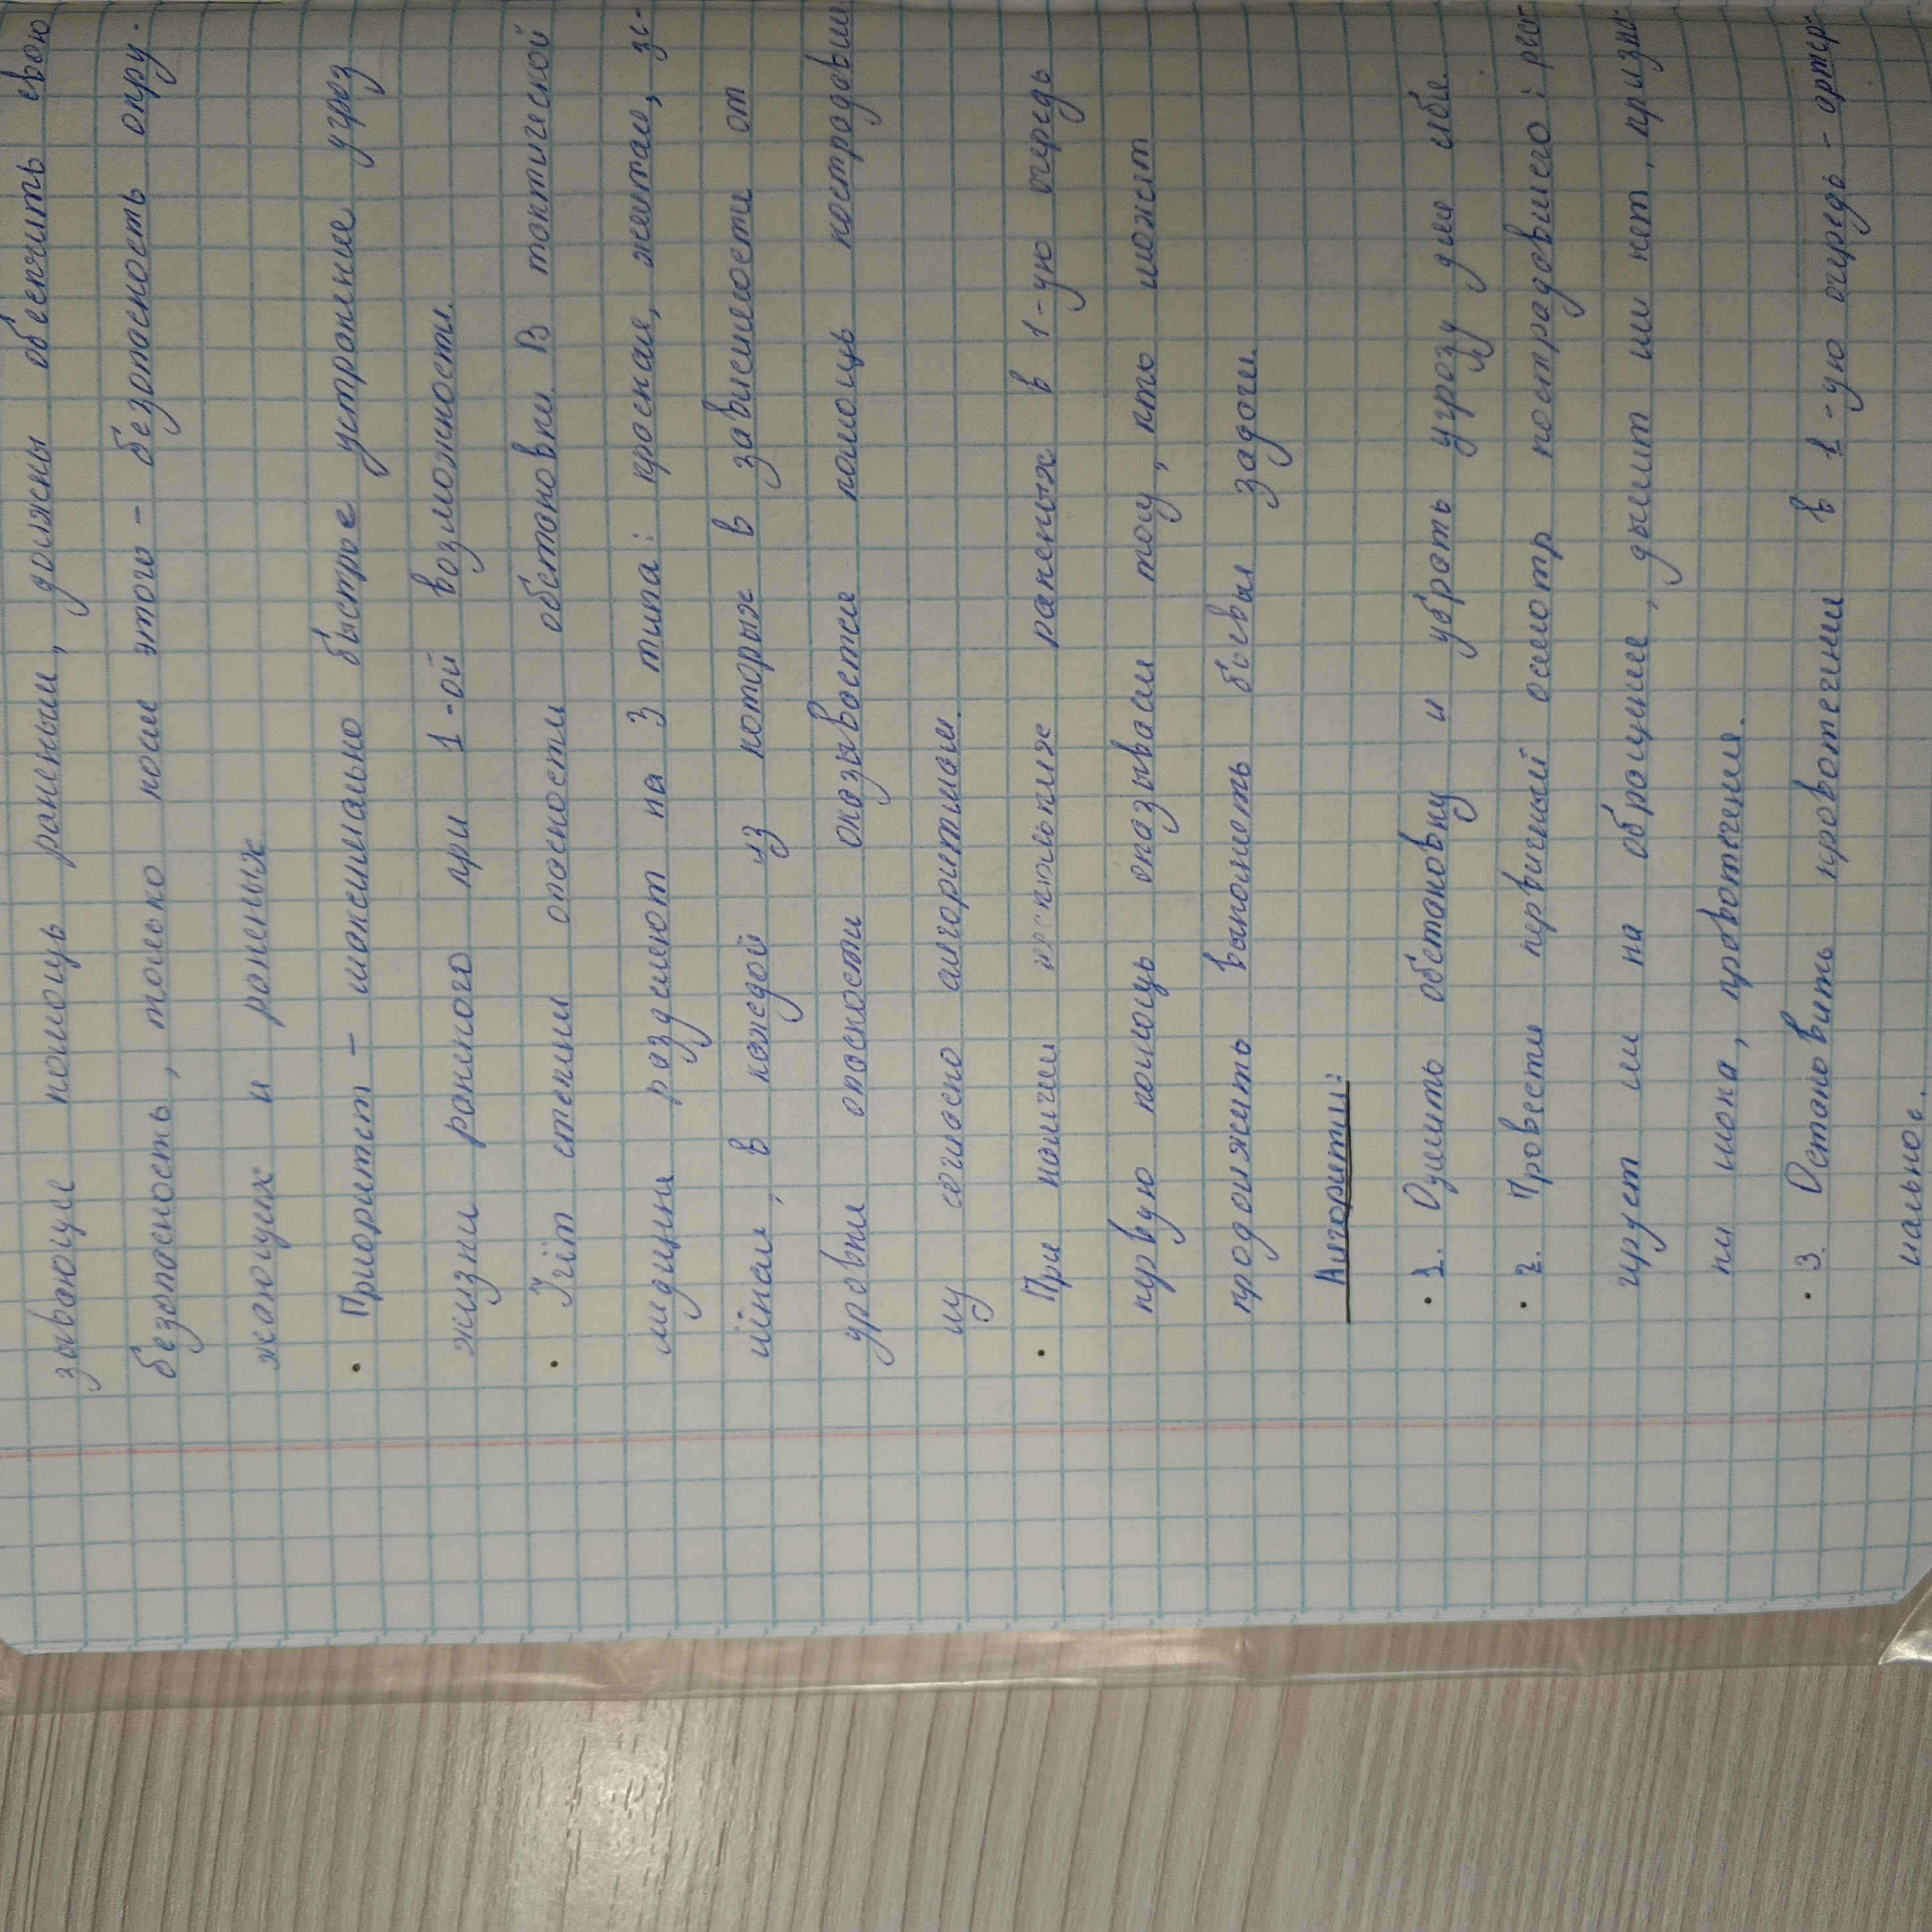 зывающие помощь раненым, должны обеспечить свою
безопасность, только после этого - безопасность окру-
жающих и раненых.
• Приоритет - максимально быстрое устранение угроз
жизни раненого при 1-ой возможности.
• Учёт степени опасности обстановки. В тактической
медицине разделяют на 3 типа: красная, желтая, зе-
лёная, в каждой из которых в зависимости от
уровня опасности оказывается помощь пострадавше
му согласно алгоритмам.
• При наличии нескольких раненых в 1-ую очередь
первую помощь оказываем тому, кто может
продолжить выполнять боевые задачи.
Алгоритм:
• 1. Оценить обстановку и убрать угрозу для себя.
• 2. Провести первичный осмотр пострадавшего: реа-
гирует ли на обращение, дышит или нет, призна-
ки шока, кровотечения.
• 3. Остановить кровотечения в 1-ую очередь - артер-
иальное.